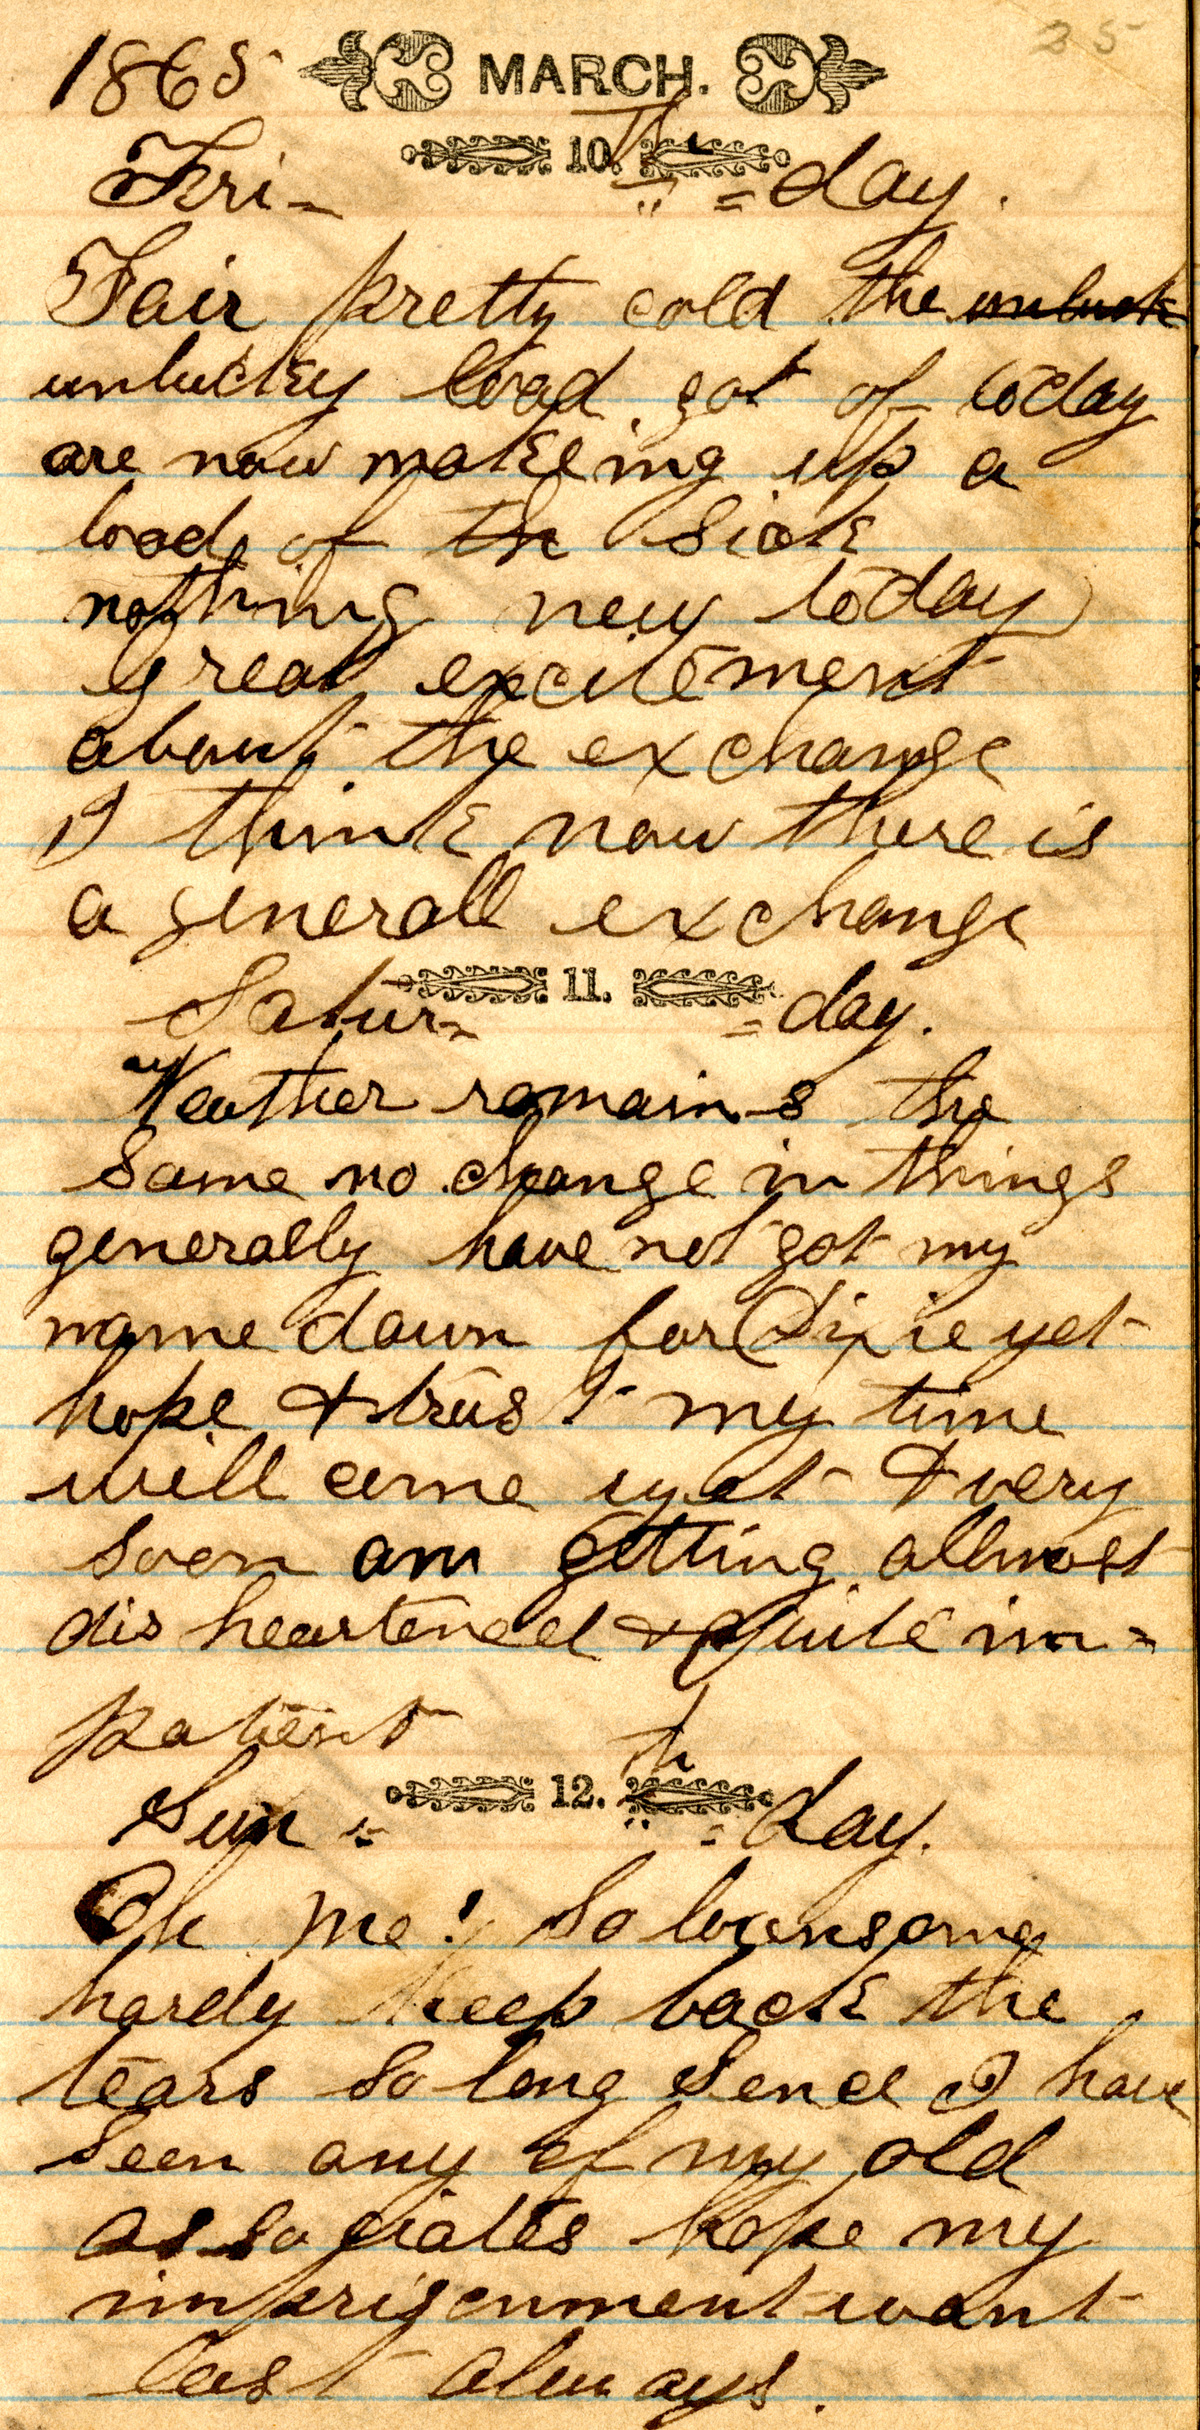 1865 MARCH. 25
Fri- 10.th =day.
Fair pretty cold the unluck
unluckey load got of today
are now makeing up a
load of the Sick
nothing new today
great excitement
about the exchange
I think now there is
a generall exchange
Satur= 11. =day.
Weather remains the
Same no change in things
generally have not got my
name down for Dixie yet
hope & trust my time
will come yet & very
soon am getting allmost
dis heartened & quite im=
patient
Sun = 12.th =day.
Oh me! So lounsome
hardy keep back the
tears so long Sence I have
Seen any of my old
associates hope my
imprisonment wont
last always.